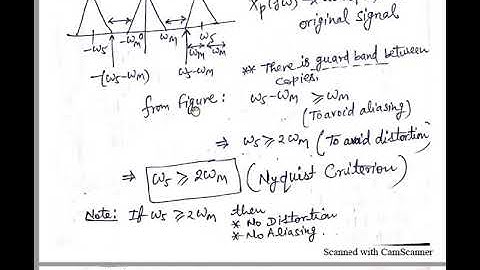 Xp(jω)
original signal
-ωs -ωM 0 ωM ωs
ωM ωM
-(ωs-ωM) ωs-ωM
** There is guard band between
copies.
from figure: ωs-ωM ≥ ωM
(To avoid aliasing)
⇒ ωs ≥ 2ωM (To avoid distortion)
⇒ ωs ≥ 2ωM (Nyquist Criterion)
Note: If ωs ≥ 2ωM then
* No Distortion
* No Aliasing.
Scanned with CamScanner